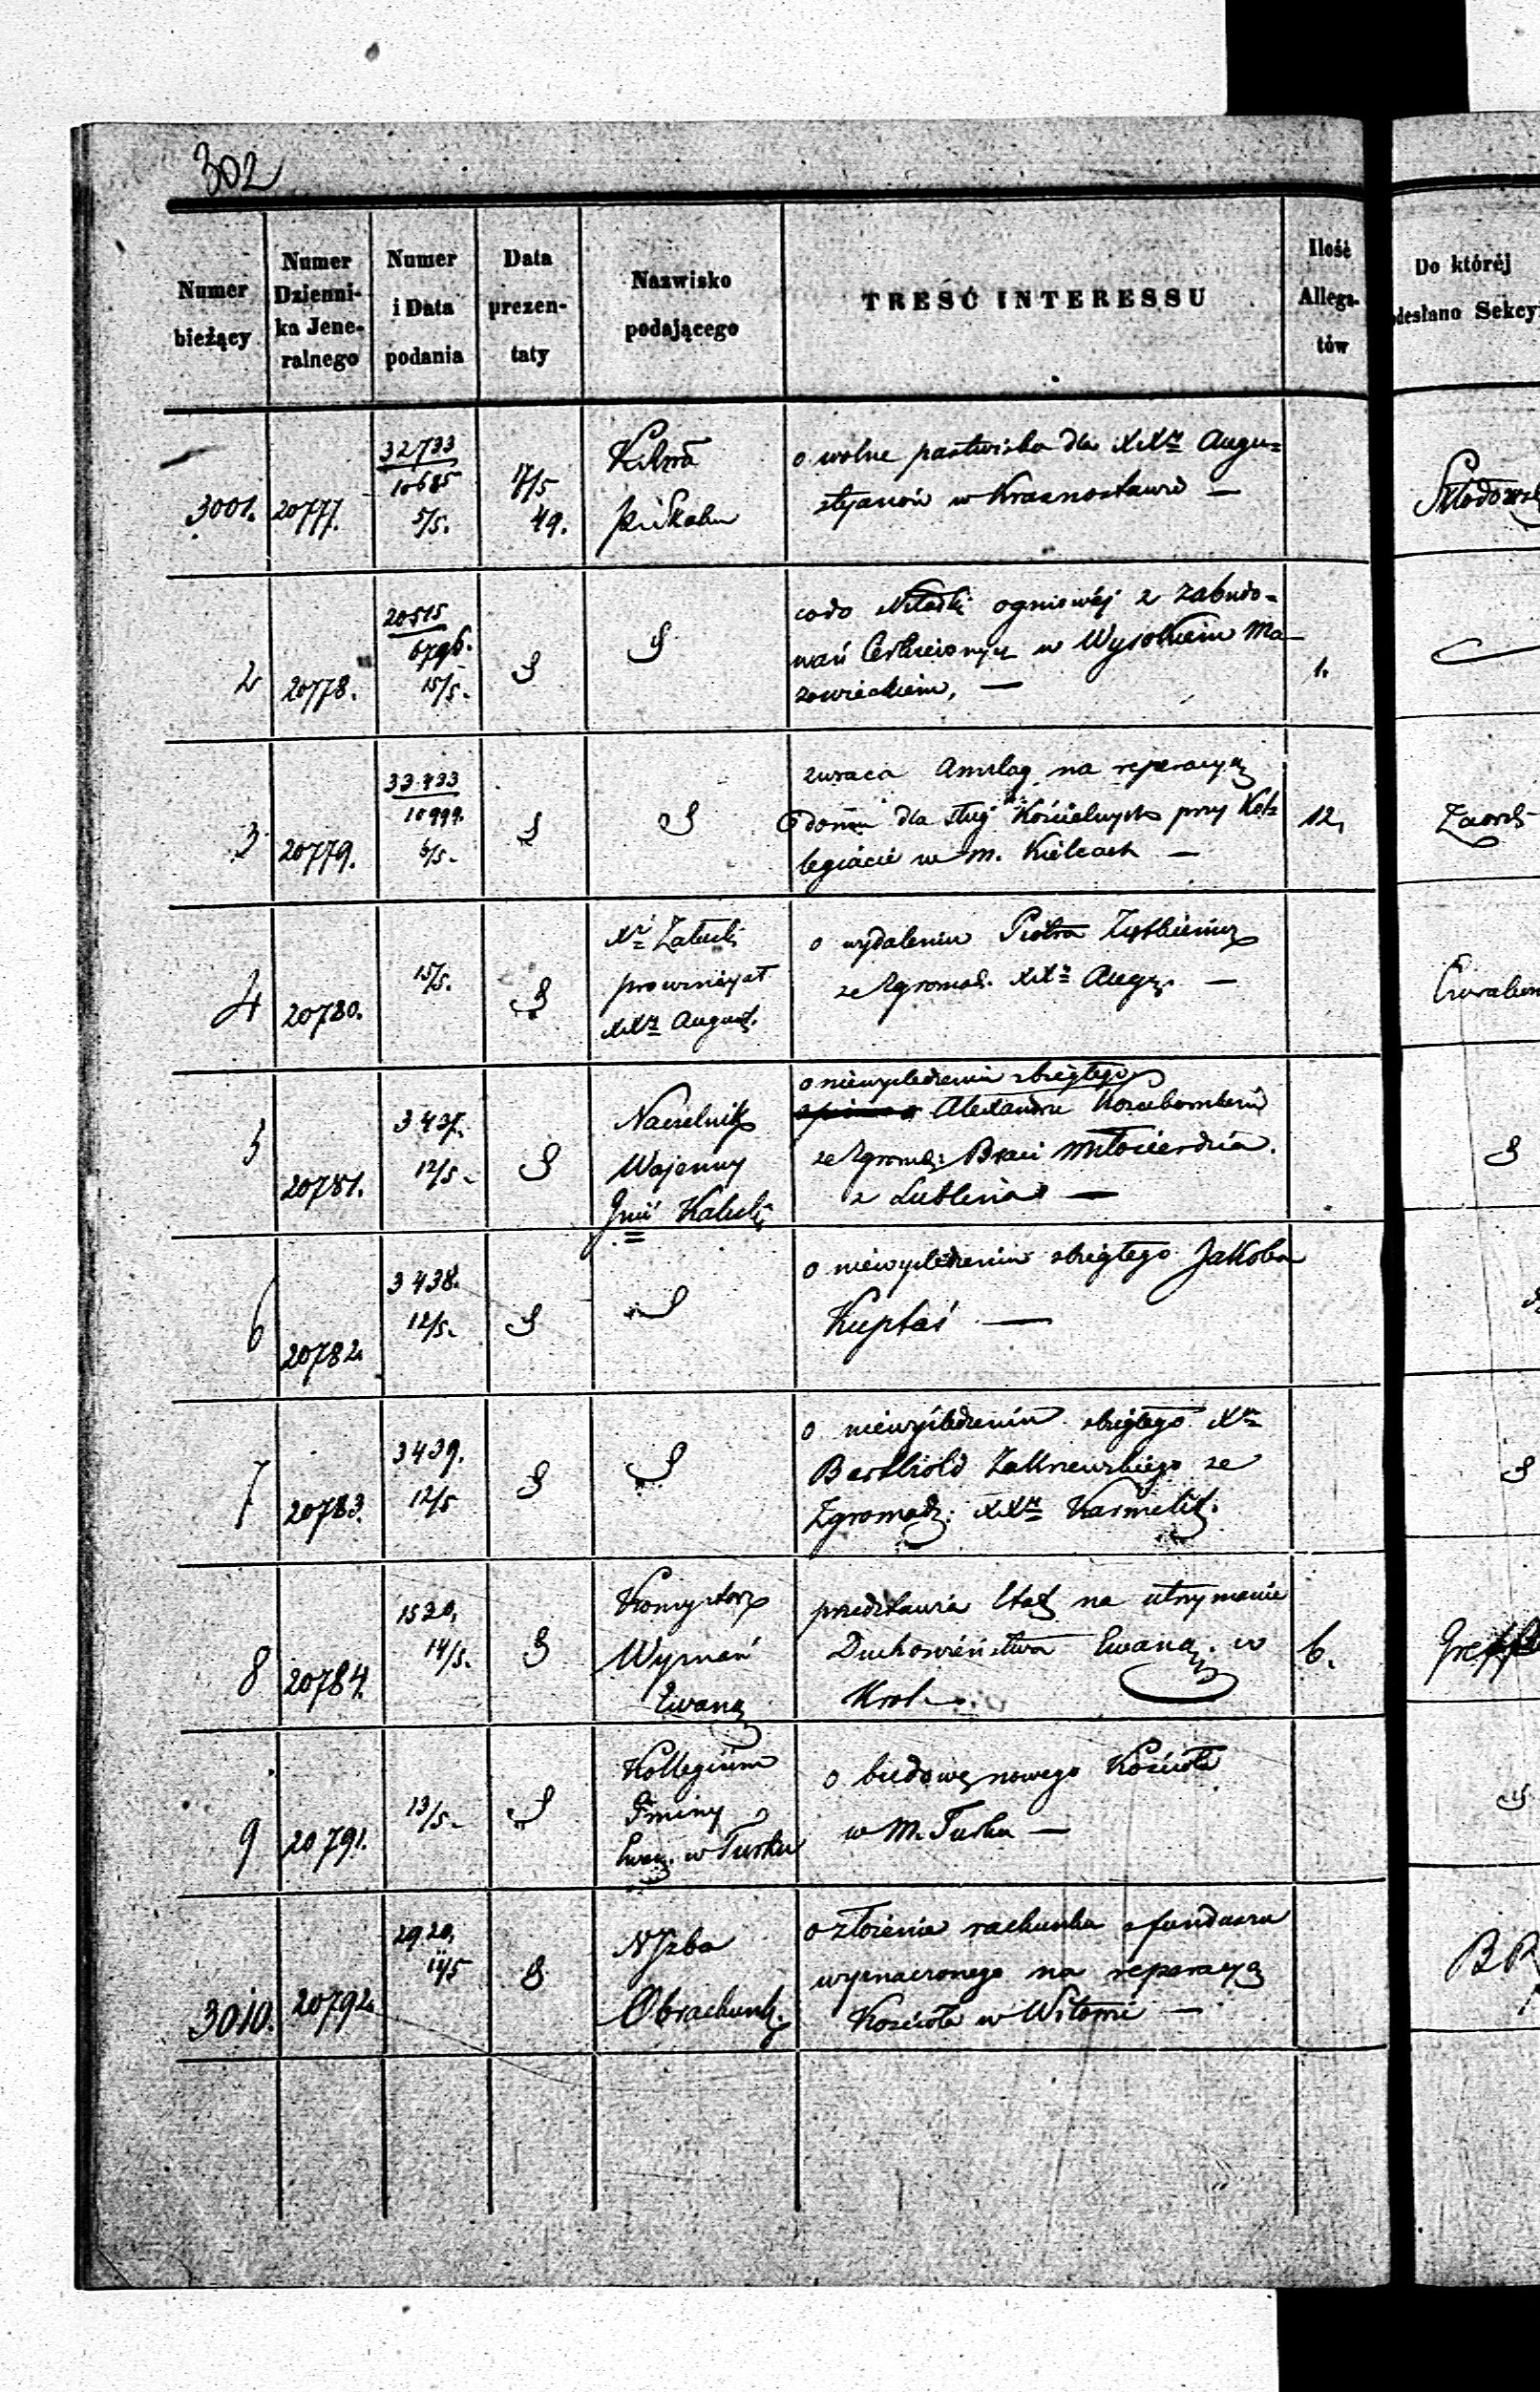 302
Numer bieżący
Numer Dzienni-ka Jene-ralnego
Numer i Data podania
Data prezen-taty
Nazwisko podającego
TREŚĆ INTERESSU
Ilość Allega-tów
Do któréj
odesłano Sekcy
3001.
20777.
32733
10685
5/5.
17/5
49.
o wolne pastwisko dla XXr Augu=
styanów w Krasnostawie —
2
20778.
20515
6796.
15/5.
codo składki ogniowéj z zabudo=
wań w Wysokiem Ma-
zowieckiem, —
1.
3
20779.
33433
10999.
6/5.
zwraca na reperacyą
domu dla sług Kościelnych przy Kol=
legiacie w m. Kielcach —
12.
4
20780.
15/5.
Xr Załuski
prowincyał
XXr August.
o wydaleniu Piotra
ze Zgromad. XXr Aug. —
5
20781.
3437.
12/5.
Naczelnik
Wojenny
Gnii Kalisk.
o niewyśledzeniu zbiegłego
Alexandra
ze Zgromad: Braci Miłosierdzia.
z Lublina —
6
20782.
3438.
12/5.
o niewyśledzeniu zbiegłego Jakóba
Kuptaś —
7
20783.
3439.
12/5
o niewyśledzeniu zbiegłego Xa
Zakrzewskiego ze
Zgromadz. XXr Karmelit.
8
20784.
1520.
14/5.
Konsystorz
Wyznań
Ewang
przedstawia Etat na utrzymanie
Duchowieństwa Ewang. w
Król.
6.
9
20791.
13/5.
Kollegium
Gminy
Ewang. w Turku
o budowę nowego Kościoła
w M. Turku —
3010.
20792.
2920.
11/5
N Izba
Obrachunk.
o złożenie rachunku z funduszu
wyznaczonego na reperacyą
Kościoła w —